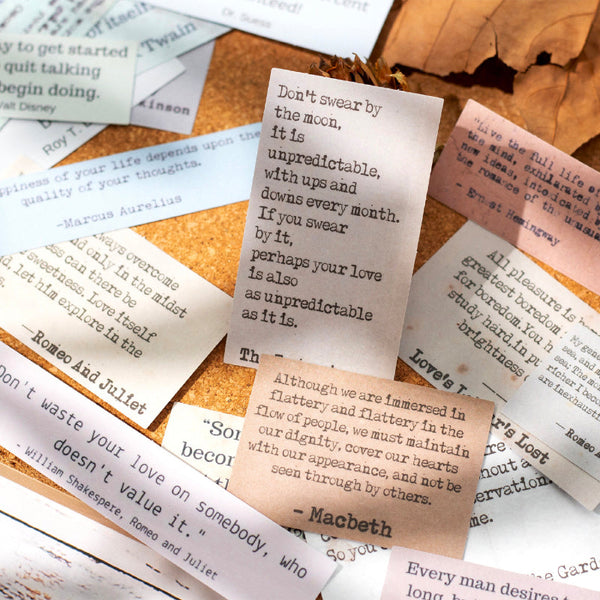 Dr. Suess
itself
Twain
y to get started
quit talking
begin doing.
Walt Disney
Roy T.
inson
ppiness of your life depends upon the
quality of your thoughts.
-Marcus Aurelius
always overcome
d only in the midst
ss can there be
sweetness. Love itself
d, let him explore in the
s.
—Romeo And Juliet
Don't swear by
the moon,
it is
unpredictable,
with ups and
downs every month.
If you swear
by it,
perhaps your love
is also
as unpredictable
as it is.
"Live the full life of
the mind, exhilarated
new ideas, intoxicated
the romance of the unusual
- Ernest Hemingway
All pleasure is
greatest boredom
for boredom. You
study hard, in
brightness
Love's L
r's Lost
My gene
sea, and
sea; The mo
richer I beco
are inexhaust
— Romeo A
Don't waste your love on somebody, who
doesn't value it."
- William Shakespere, Romeo and Juliet
"Som
becom
Although we are immersed in
flattery and flattery in the
flow of people, we must maintain
our dignity, cover our hearts
with our appearance, and not be
seen through by others.
- Macbeth
out a
servation
me.
So you
he Gard
Every man desires t
long, b